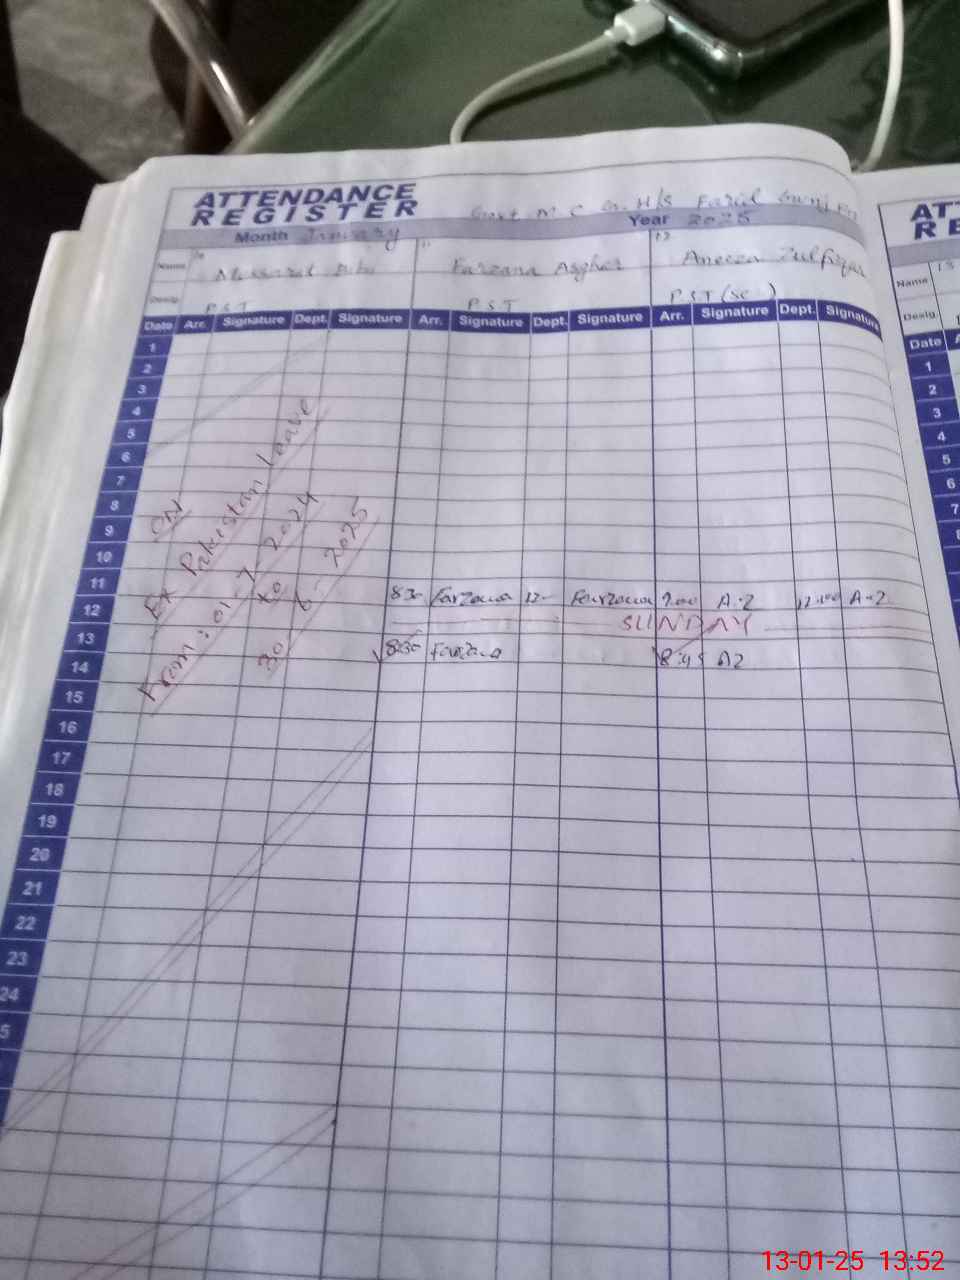 ATTENDANCE
REGISTER
Govt M.C G. H/S Farid Gunj
Month January Year 2025
Name 10 Musarat Bibi 11 Farzana Asghar 12 Aneeza Zulfiqar
Desig. P.S.T P.S.T P.S.T (Sc)
Date Arr. Signature Dept. Signature Arr. Signature Dept. Signature Arr. Signature Dept. Signature
1
2
3
4
5
6
7
8
9
10
11 830 Farzana 12- Farzana 9.00 A.Z 12:00 A.Z
12 SUNDAY
13 8:30 Farzana 8:45 AZ
14
15
16
17
18
19
20
21
22
23
24
5
ON
Ex Pakistan Leave
From: 01-7-2024
to
30 6-2025
AT
RE
Name 13
Desig.
Date
1
2
3
4
5
6
7
13-01-25 13:52